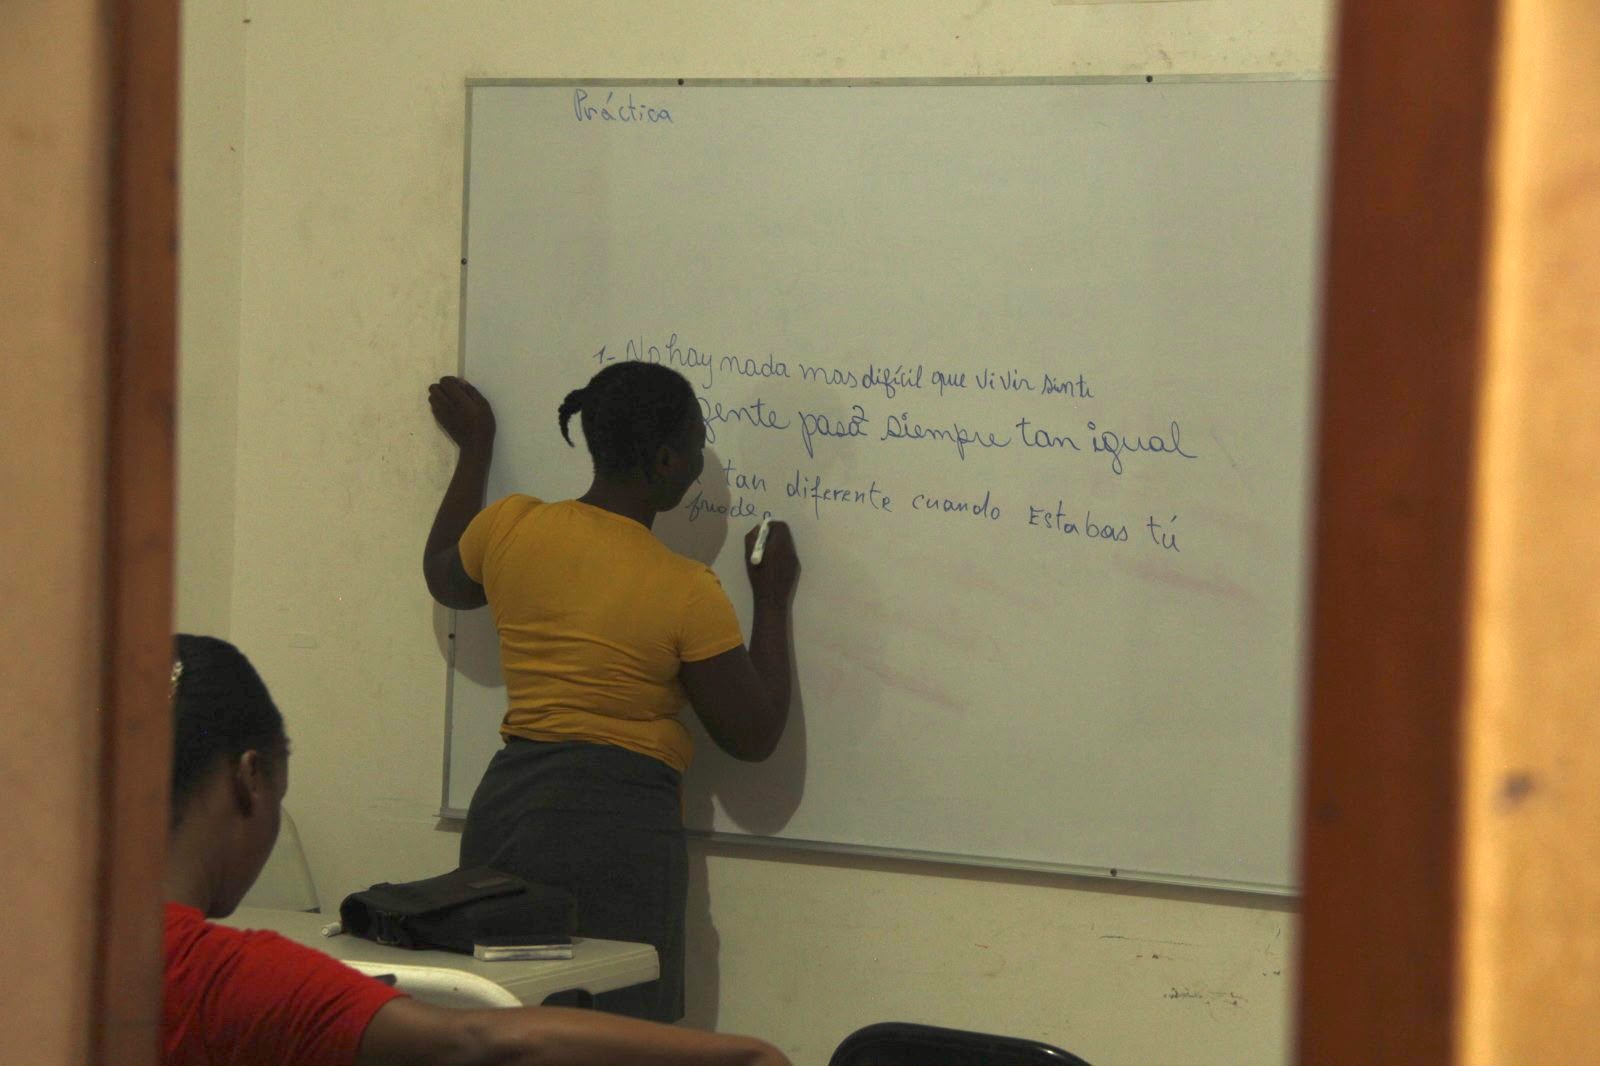 Práctica
1- No hay nada mas difícil que vivir sinti
gente pasa siempre tan igual
tan diferente cuando Estabas tú